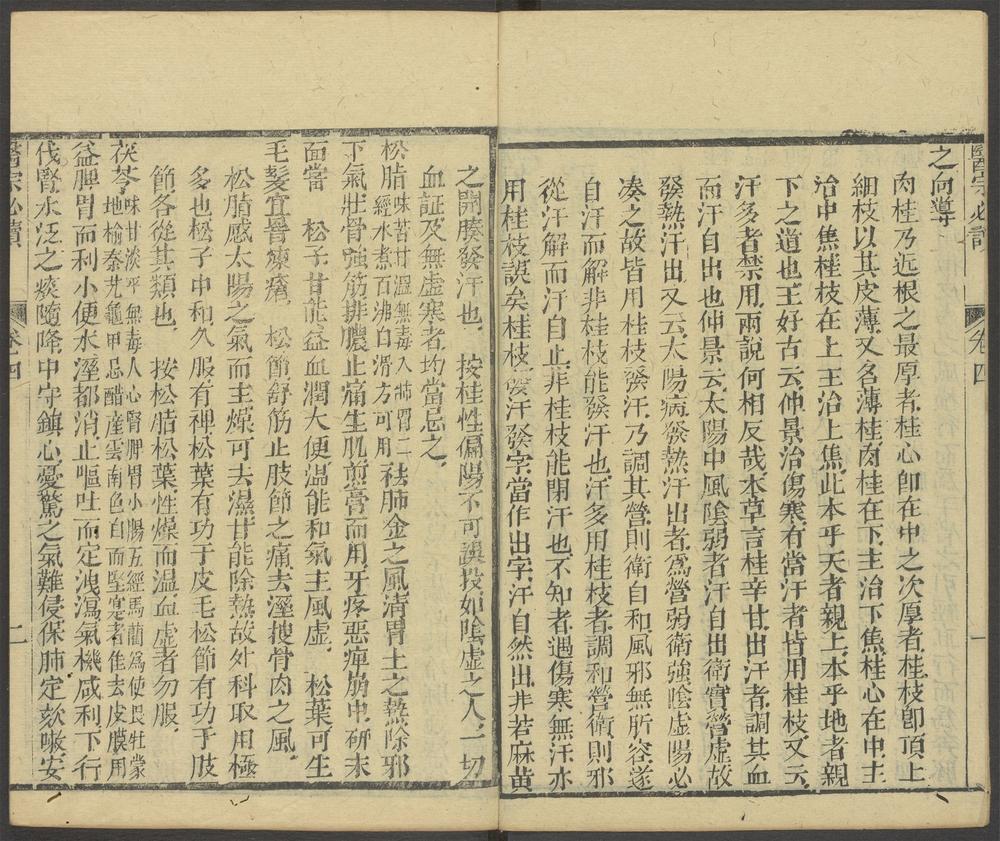 醫宗必讀
卷四
一
之向導
肉桂乃近根之最厚者桂心卽在中之次厚者桂枝卽頂上
細枝以其皮薄又名薄桂肉桂在下主治下焦桂心在中主
治中焦桂枝在上主治上焦此本乎天者親上本乎地者親
下之道也王好古云仲景治傷寒有當汗者皆用桂枝又云
汗多者禁用兩說何相反哉本草言桂辛甘出汗者調其血
而汗自出也仲景云太陽中風陰弱者汗自出衛實營虛故
發熱汗出又云太陽病發熱汗出者爲營弱衛強陰虛陽必
凑之故皆用桂枝發汗乃調其營則衛自和風邪無所容遂
自汗而解非桂枝能發汗也汗多用桂枝者調和營衛則邪
從汗解而汗自止非桂枝能閉汗也不知者遇傷寒無汗亦
用桂枝誤矣桂枝發汗發字當作出字汗自然出非若麻黃
之開腠發汗也　按桂性偏陽不可誤投如陰虛之人一切
血証及無虛寒者均當忌之
松脂味苦甘溫無毒入肺胃二經水煮百沸白滑方可用祛肺金之風清胃土之熱除邪
下氣壯骨強筋排膿止痛生肌煎膏而用牙疼惡痺崩中研末
面當　松子甘能益血潤大便溫能和氣主風虛　松葉可生
毛髮宜詧凍瘡　松節舒筋止肢節之痛去溼搜骨肉之風
松脂感太陽之氣而主燥可去濕甘能除熱故外科取用極
多也松子中和久服有裨松葉有功于皮毛松節有功于肢
節各從其類也　按松脂松葉性燥而溫血虛者勿服
茯苓味甘淡平無毒入心腎脾胃小腸五經馬藺爲使畏牡蒙地榆秦艽龜甲忌醋產雲南色白而堅寔者佳去皮膜用
益脾胃而利小便水溼都消止嘔吐而定洩瀉氣機咸利下行
伐腎水泛之痰隨降中守鎮心憂驚之氣難侵保肺定欬嗽安
醫宗必讀
卷四
二